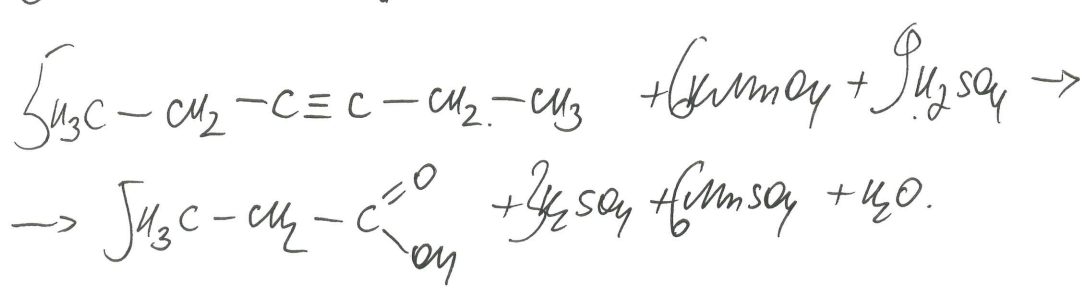 5H₃C – CH₂ – C ≡ C – CH₂ – CH₃ + 6KMnO₄ + 9H₂SO₄ →
→ 5H₃C – CH₂ – C(=O)OH + 3K₂SO₄ + 6MnSO₄ + H₂O.